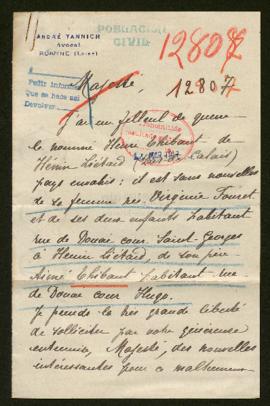 POBLACION
CIVIL
ANDRÉ YANNICH
Avocat
ROANNE (Loire)
12807
12807
Pedir inform
Que se hace sel
Devolver
Majesté
J'ai un filleul de guerre
le nommé Henri Thibaut de
Hénin Liétard (Pas de Calais)
pays envahis : il est sans nouvelles
de sa femme née Virginie
et de ses deux enfants habitant
rue de Douai cour Saint Georges
à Henin Liétard, de son père
Aimé Thibaut habitant rue
de Douai cour Hugo.
Je prends la très grande liberté
de solliciter par votre généreuse
entremise, Majesté, des nouvelles
intéressantes pour ce malheureux